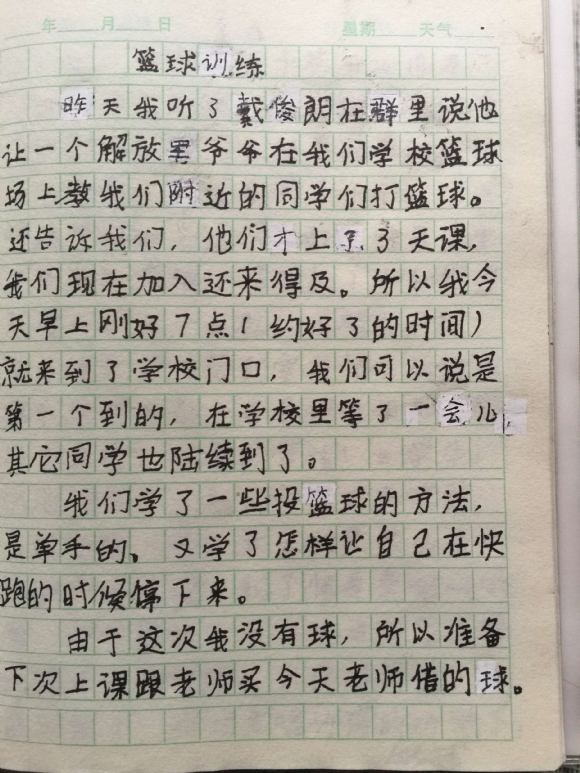 年 月 日 星期 天气
篮球训练
昨天我听了戴俊朗在群里说他
让一个解放军爷爷在我们学校篮球
场上教我们附近的同学们打篮球。
还告诉我们，他们才上了3天课，
我们现在加入还来得及。所以我今
天早上刚好7点（约好了的时间）
就来到了学校门口，我们可以说是
第一个到的，在学校里等了一会儿，
其它同学也陆续到了。
我们学了一些投篮球的方法，
是单手的。又学了怎样让自己在快
跑的时候停下来。
由于这次我没有球，所以准备
下次上课跟老师买今天老师借的球。